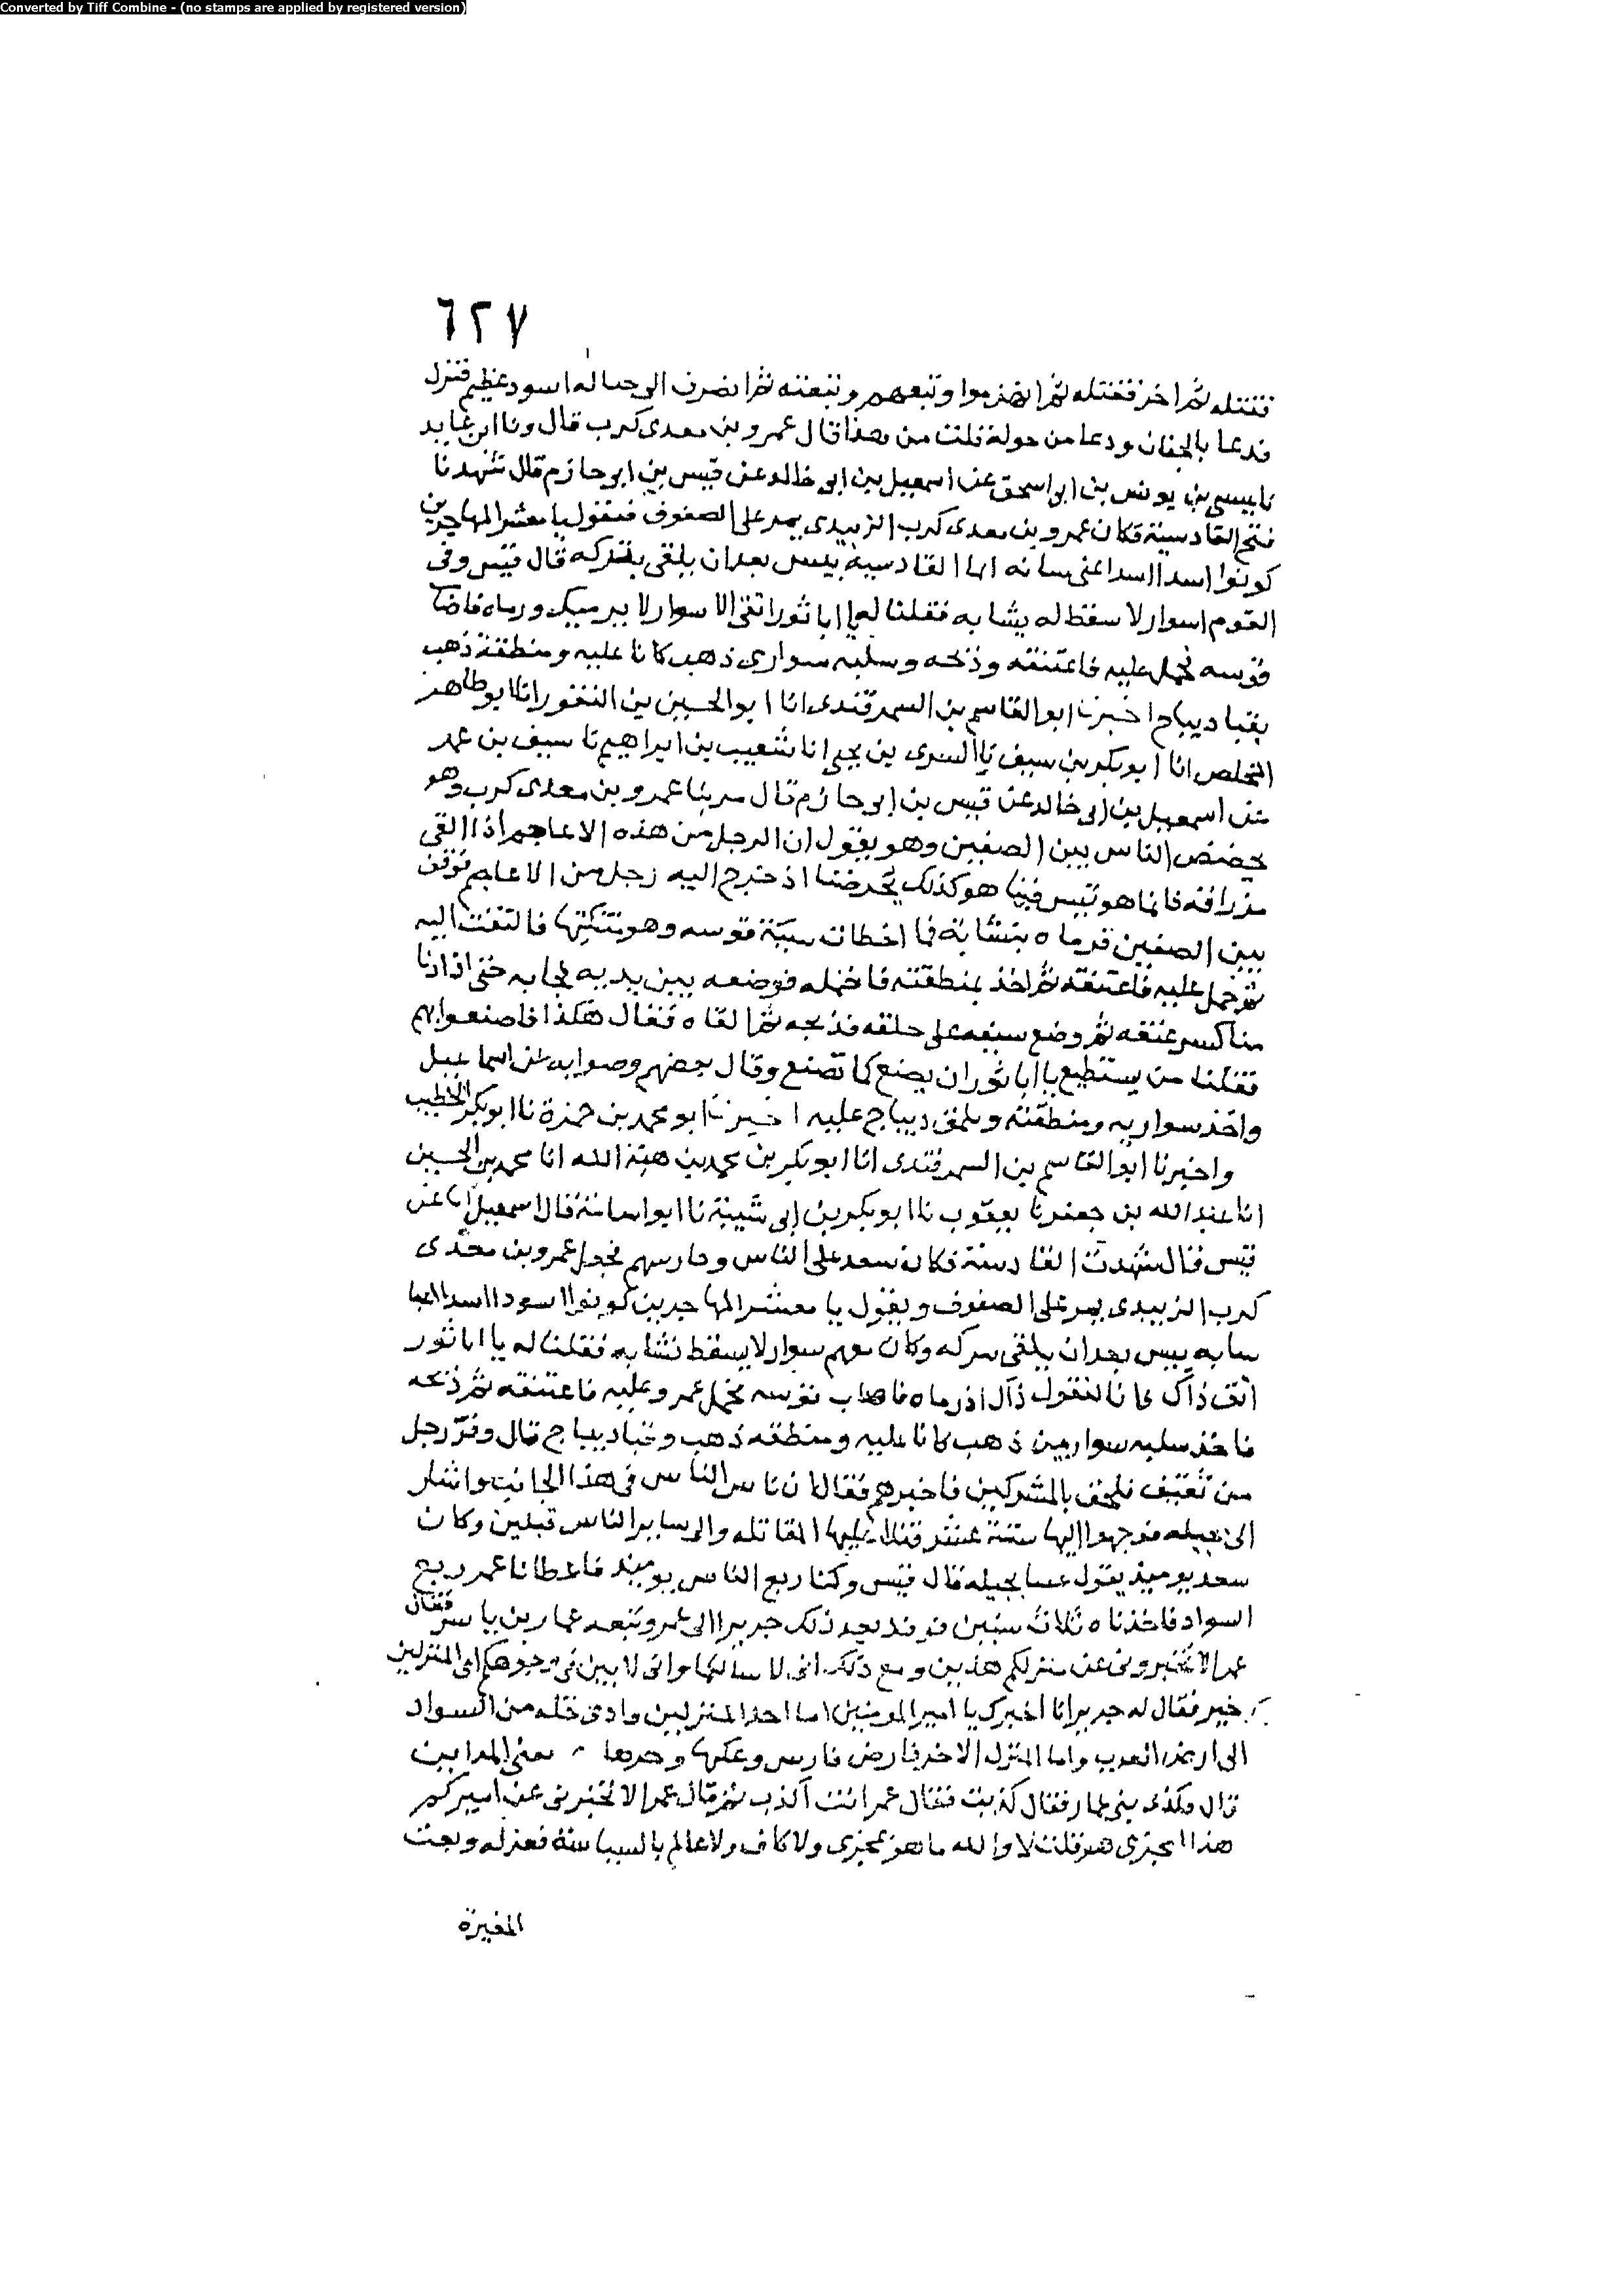 Converted by Tiff Combine - (no stamps are applied by registered version)
٦٢٧
فقتله ثم اخر فقتله ثم انهزموا وتبعهم وتبعته ثم انصرف الى حباله اسود عظيم فنزل
فدعا بالجفان ودعا من حوله قلت من هذا قال عمرو بن معدى كرب قال ونا ابن عايد
نا عيسى بن يونس بن ابى اسحق عن اسمعيل بن ابى خالد عن قيس بن ابى حازم قال شهدنا
فتح القادسية فكان عمرو بن معدى كرب الزبيدى يمر على الصفوف فيقول يا معشر المهاجرين
كونوا اسدا اسدا عنى سانه انما القادسية بيس بعد ان يلقى يتركه قال قيس وفى
القوم اسوار لا سقط له نشابه فقلنا له يا ابا ثور اتق الاسوار لا يرميك ورماه فاصاب
قوسه فحمل عليه فاعتنقه وذبحه وسلبه سوارى ذهب كانا عليه ومنطقة ذهب
بقبا ديباج اخبرنا ابو القاسم بن السمرقندى انا ابو الحسين بن النقور انا ابو طاهر
المخلص انا ابو بكر بن سيف نا السرى بن يحيى انا شعيب بن ابراهيم نا سيف بن عمر
عن اسمعيل بن ابى خالد عن قيس بن ابى حازم قال مر بنا عمرو بن معدى كرب وهو
يحضض الناس بين الصفين وهو يقول ان الرجل من هذه الاعاجم اذا القى
مزراقه فانما هو تيس فبينا هو كذلك يحرضنا اذ خرج اليه رجل من الاعاجم فوقف
بين الصفين فرماه بنشابة فما اخطات سية قوسه وهو متنكبها فالتفت اليه
ثم حمل عليه فاعتنقه ثم اخذ بمنطقته فاحتمله فوضعه بين يديه فجا به حتى اذا دنا
منا كسر عنقه ثم وضع سيفه على حلقه فذبحه ثم القاه فقال هكذا فاصنعوا بهم
فقلنا من يستطيع يا ابا ثور ان يصنع كما تصنع وقال بعضهم وصوابه عن اسماعيل
واخذ سواريه ومنطقته ويلمق ديباج عليه اخبرنا ابو محمد بن حمزة نا ابو بكر الخطيب
واخبرنا ابو القاسم بن السمرقندى انا ابو بكر بن محمد بن هبة الله انا محمد بن الحسين
انا عبد الله بن جعفر نا يعقوب نا ابو بكر بن ابى شيبة نا ابو اسامة قال اسمعيل انا عن
قيس قال شهدت القادسية فكان سعد على الناس وحارسهم فجعل عمرو بن معدى
كرب الزبيدى يمر على الصفوف ويقول يا معشر المهاجرين كونوا اسودا اسدا
بيس بعد ان يلقى سركه وكان معهم سوار لا يسقط نشابه فقلنا له يا ابا ثور
اتق ذاك فانا لنقول ذاك اذ رماه فاصاب قوسه فحمل عمرو عليه فاعتنقه ثم ذبحه
فاخذ سلبه سوارين ذهب كانا عليه ومنطقه ذهب وقبا ديباج قال وفر رجل
من ثقيف فلحق بالمشركين فاخبرهم فقال ان ناس الناس فى هذا الجانب واشار
الى بجيله فوجهوا اليها ستة عشر فيلا عليها المقاتله والى ساير الناس فيلين وكان
سعد يوميذ يقول بجيله قال قيس وكنا ربع الناس يوميذ فاعطانا عمر ربع
السواد فاخذناه ثلاث سنين فوفد بعد ذلك جرير الى عمر وتبعه عمار بن ياسر فقال
عمر الا تخبرونى عن منزليكم هذين ومع ذلك انى لا سالكما وانى لا بين فى وجوهكم اى المنزلين
خير فقال له جرير انا اخبرك يا امير المومنين اما احد المنزلين وادى نخله من السواد
الى ارض العرب واما المنزل الاخر فارض فارس وعكها وحرها يعنى المداين
قال وكذبنى عمار فقال كذبت فقال عمر انت اكذب ثم قال عمر الا تخبرنى عن اميركم
هذا ايجزى هو قلت لا والله ما هو بمجزى ولا كاف ولا عالم بالسياسة فعزله وبعث
المغيرة